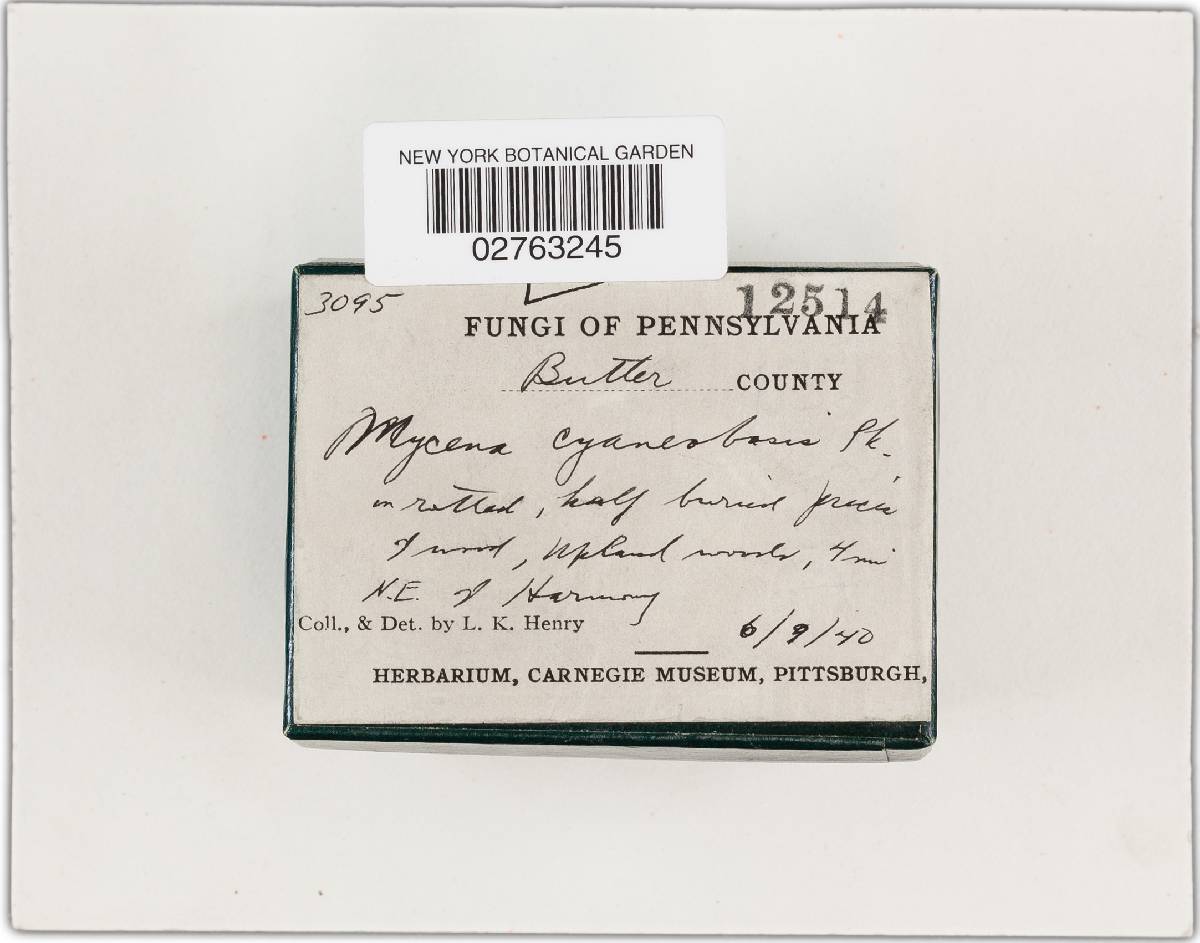 NEW YORK BOTANICAL GARDEN
02763245
3095
12514
FUNGI OF PENNSYLVANIA
Butler COUNTY
Mycena cyaneobasis Pk.
on rotted, half buried piece
of wood, upland woods, 4 mi
N.E. of Harmony
Coll., & Det. by L. K. Henry 6/9/40
HERBARIUM, CARNEGIE MUSEUM, PITTSBURGH,